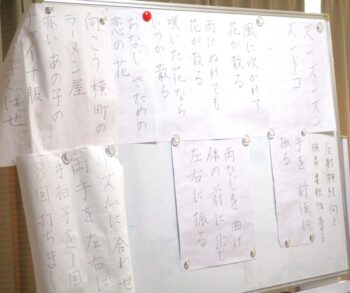 ズンズンズン
ズンドコ
風に吹かれて
花が散る
雨にぬれても
花が散る
咲いた花なら
いつか散る
おなじさだめの
恋の花
向こう横町の
ラーメン屋
赤いあの子の
チャイナ服
手を前後に
振る
両ひじを曲げ
体の前に出し
左右に振る
リズムに合わせ
両手を左右に
手拍子を1回
8回打ちま